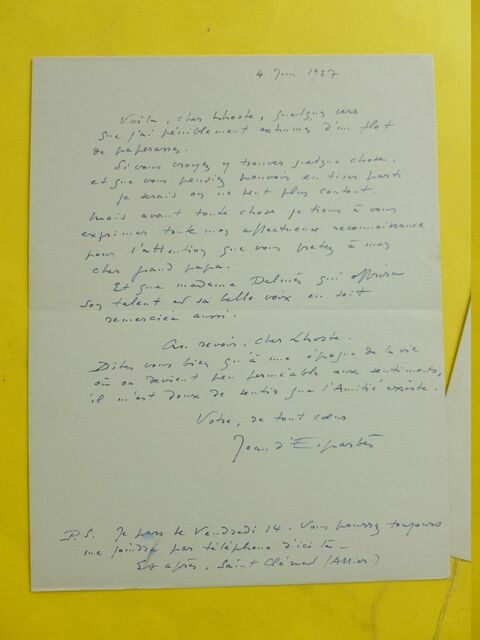 4 Juin 1957
Voilà, cher Lhoste, quelques vers
que j'ai péniblement exhumés d'un flot
de paperasses.
Si vous croyez y trouver quelque chose,
et que vous pensiez pouvoir en tirer parti
je serais on ne peut plus content.
Mais avant toute chose je tiens à vous
exprimer toute mon affectueuse reconnaissance
pour l'attention que vous prêtez à mon
cher grand papa.
Et que madame Delmès qui offrira
son talent et sa belle voix en soit
remerciée aussi.
Au revoir, cher Lhoste.
Dites vous bien qu'à une époque de la vie
où on devient peu perméable aux sentiments,
il m'est doux de sentir que l'Amitié existe.
Votre, de tout cœur
Jean d'Esparbès
P.S. Je pars le Vendredi 14. Vous pourrez toujours
me joindre par téléphone d'ici là -
Et après, Saint Clément (Allier)